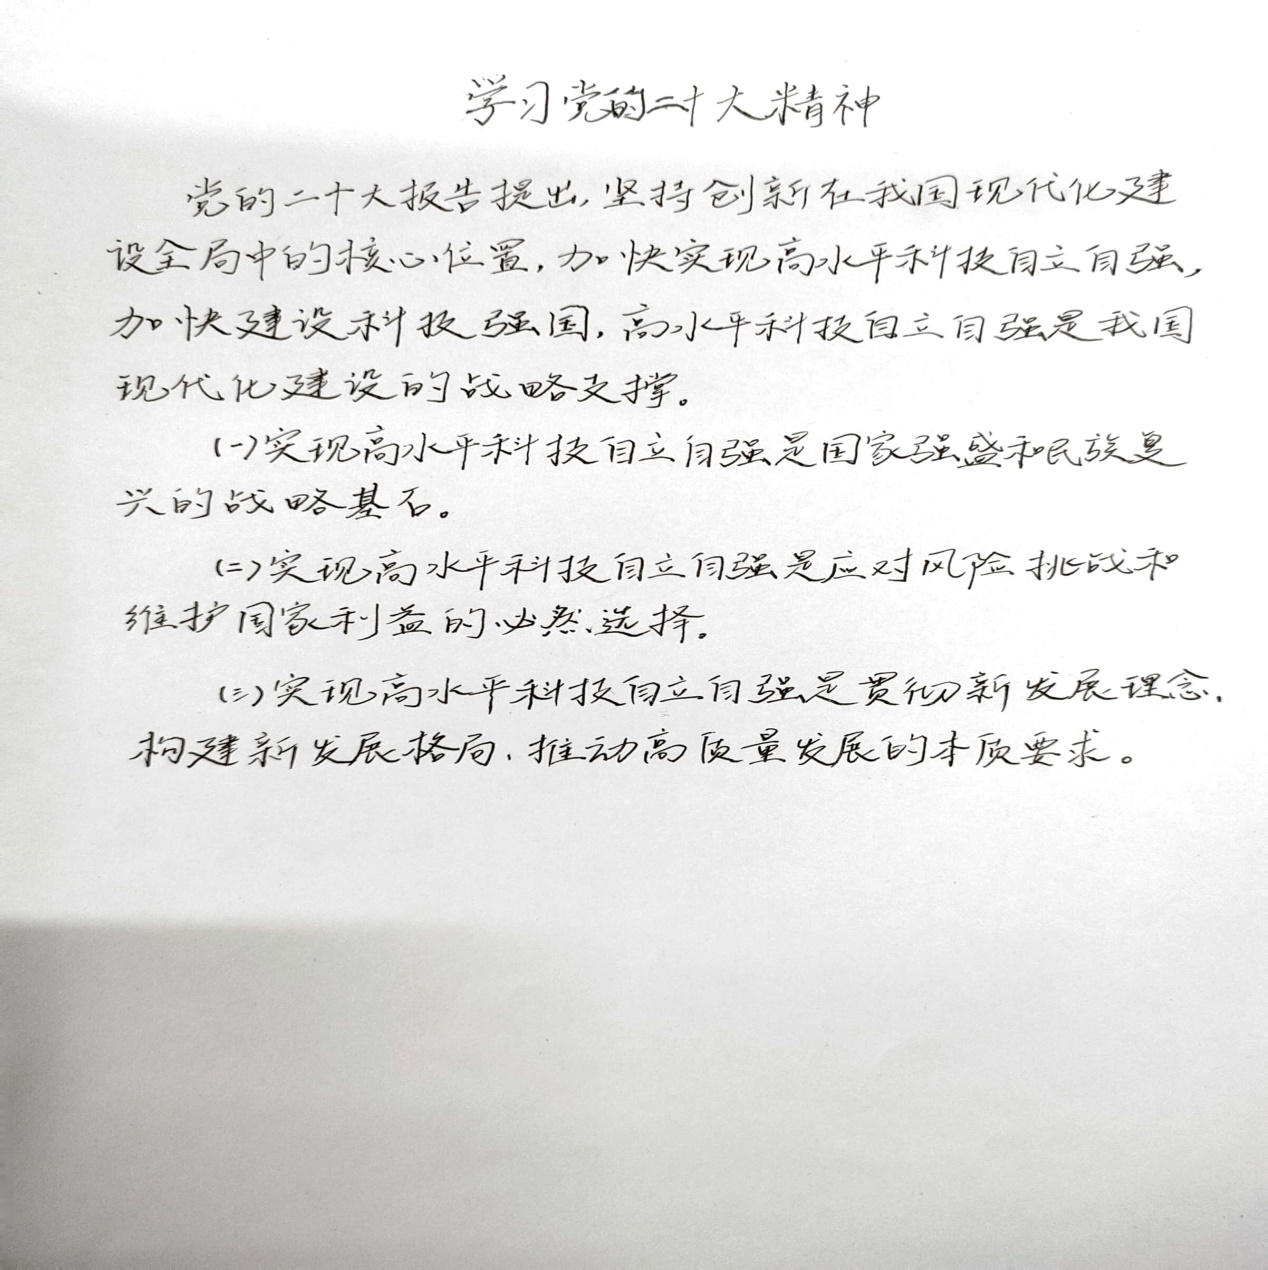 学习党的二十大精神
党的二十大报告提出,坚持创新在我国现代化建
设全局中的核心位置,加快实现高水平科技自立自强,
加快建设科技强国,高水平科技自立自强是我国
现代化建设的战略支撑。
(一)实现高水平科技自立自强是国家强盛和民族复
兴的战略基石。
(二)实现高水平科技自立自强是应对风险挑战和
维护国家利益的必然选择。
(三)实现高水平科技自立自强是贯彻新发展理念、
构建新发展格局、推动高质量发展的本质要求。